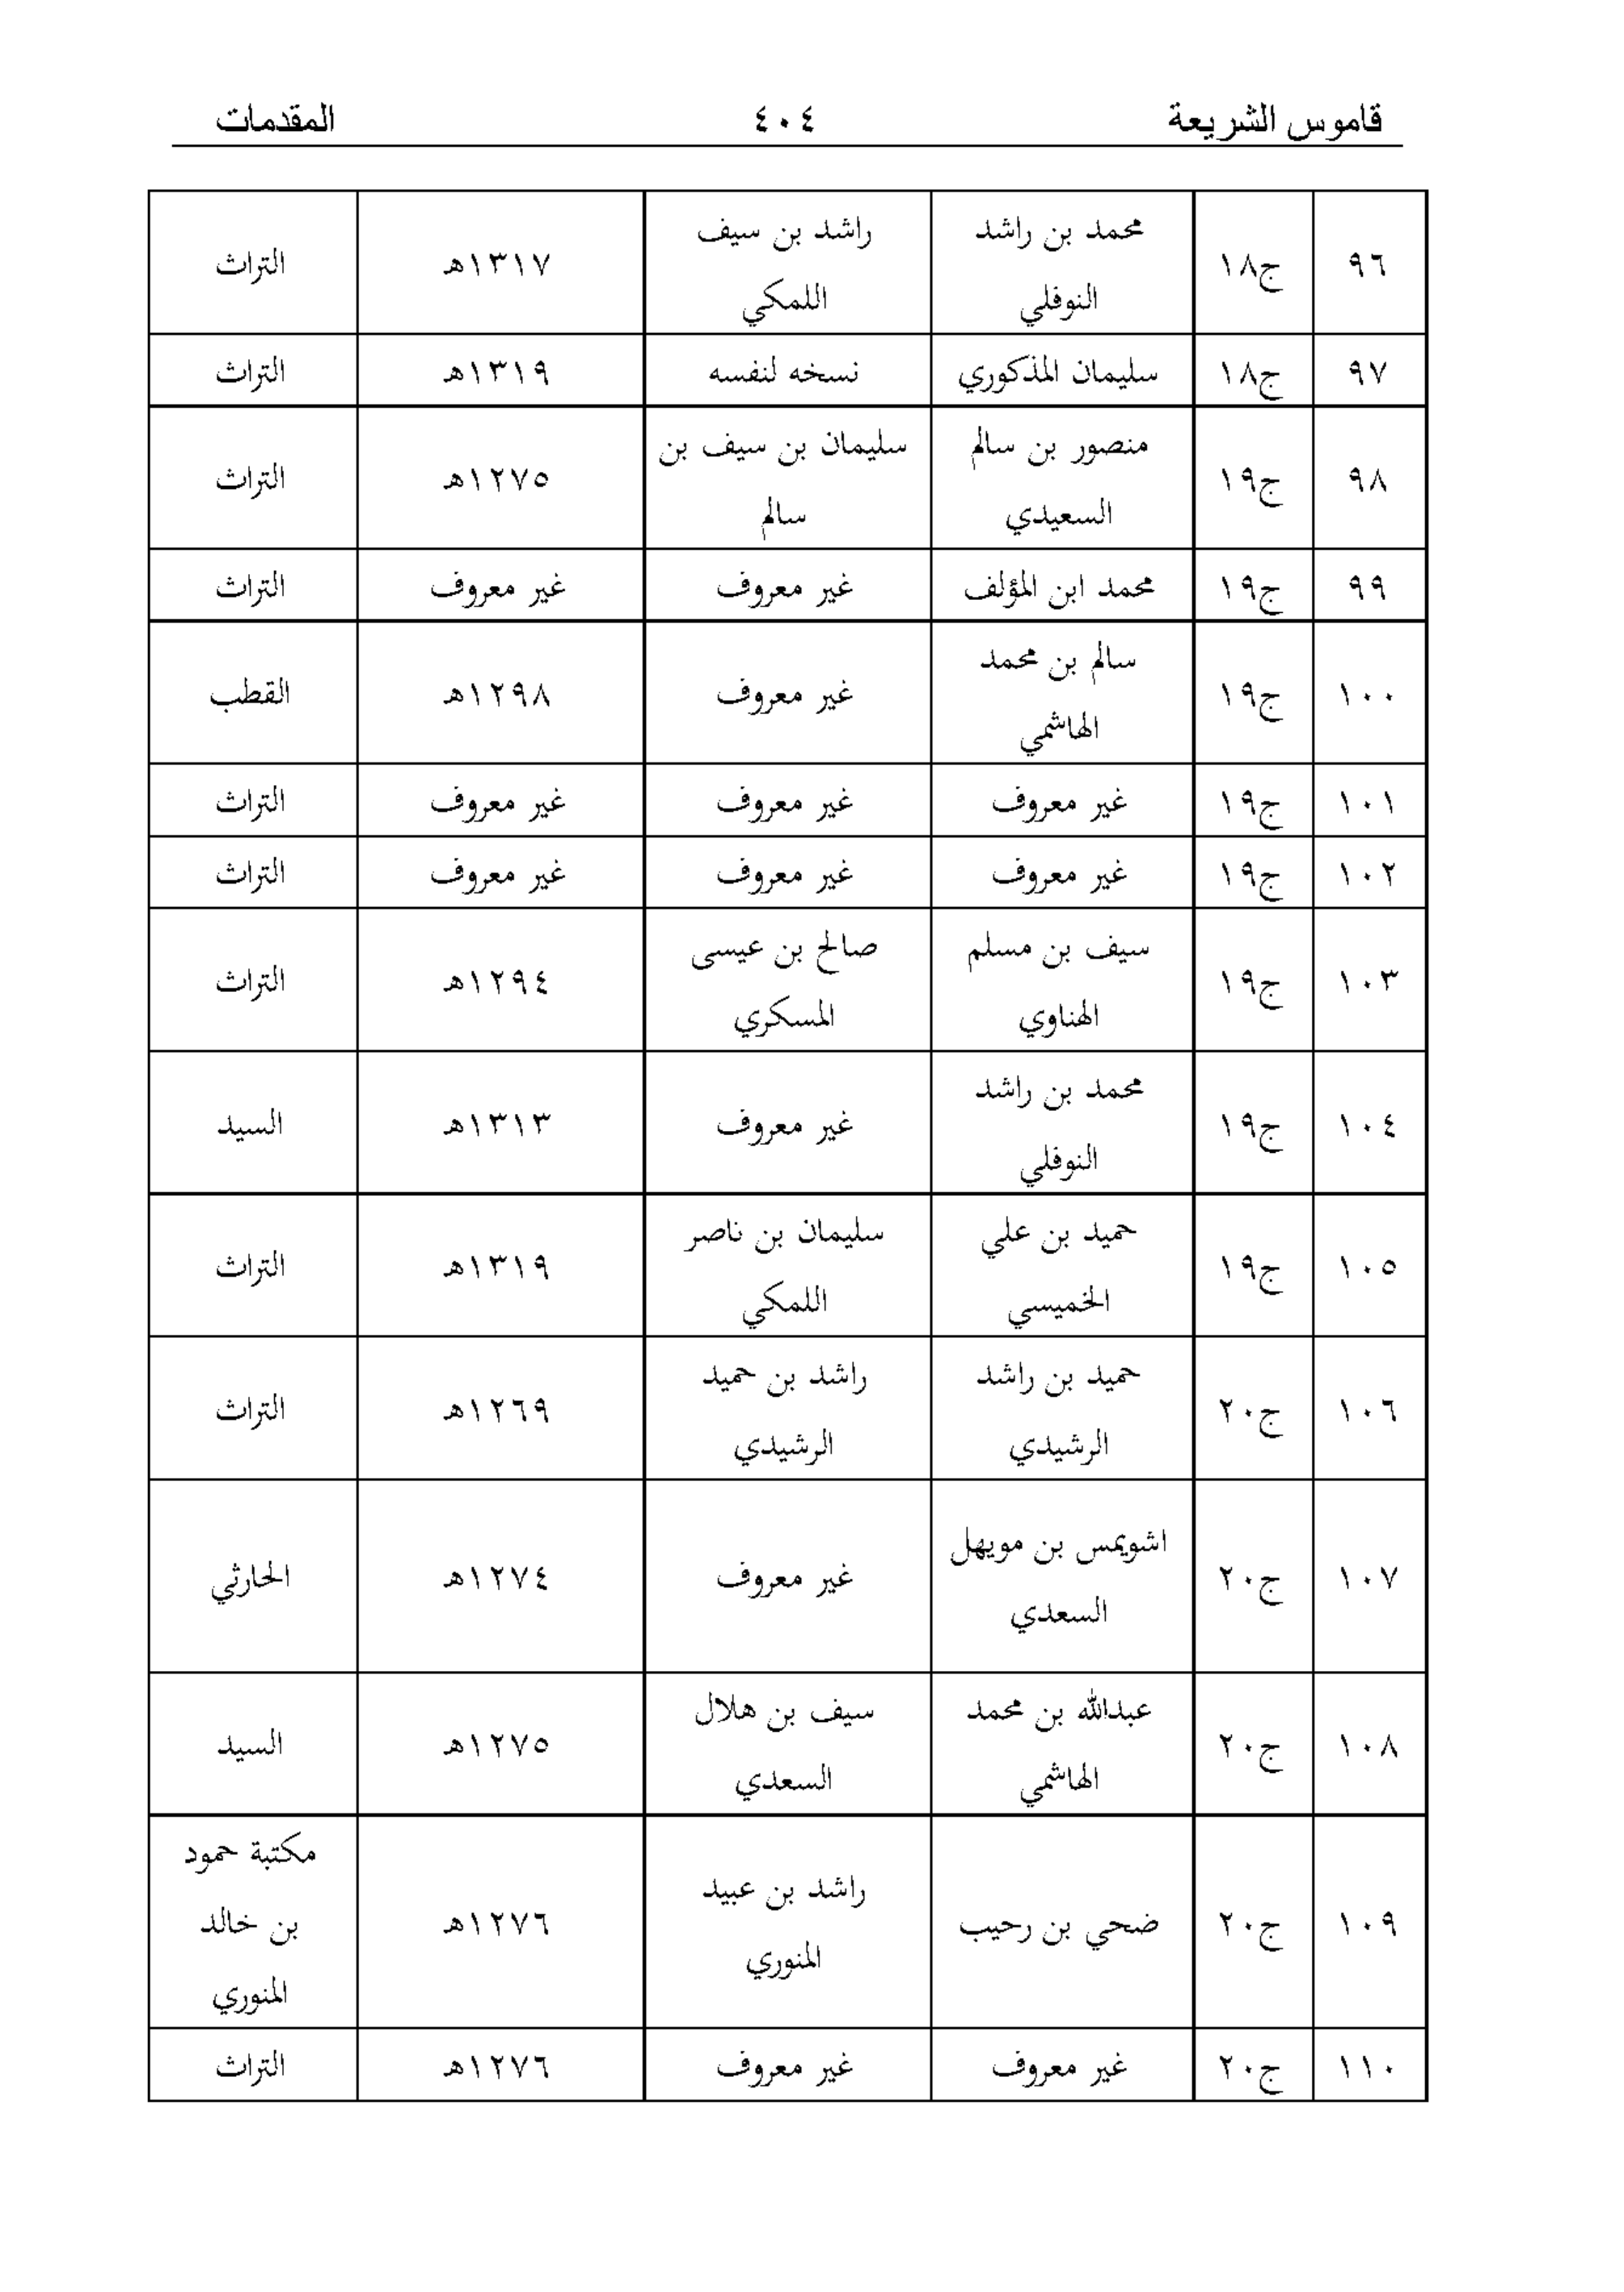 قاموس الشريعة ٤٠٤ المقدمات
٩٦ ج١٨ محمد بن راشد النوفلي راشد بن سيف اللمكي ١٣١٧هـ التراث
٩٧ ج١٨ سليمان المذكوري نسخه لنفسه ١٣١٩هـ التراث
٩٨ ج١٩ منصور بن سالم السعيدي سليمان بن سيف بن سالم ١٢٧٥هـ التراث
٩٩ ج١٩ محمد ابن المؤلف غير معروف غير معروف التراث
١٠٠ ج١٩ سالم بن محمد الهاشمي غير معروف ١٢٩٨هـ القطب
١٠١ ج١٩ غير معروف غير معروف غير معروف التراث
١٠٢ ج١٩ غير معروف غير معروف غير معروف التراث
١٠٣ ج١٩ سيف بن مسلم الهناوي صالح بن عيسى المسكري ١٢٩٤هـ التراث
١٠٤ ج١٩ محمد بن راشد النوفلي غير معروف ١٣١٣هـ السيد
١٠٥ ج١٩ حميد بن علي الخميسي سليمان بن ناصر اللمكي ١٣١٩هـ التراث
١٠٦ ج٢٠ حميد بن راشد الرشيدي راشد بن حميد الرشيدي ١٢٦٩هـ التراث
١٠٧ ج٢٠ اشويمس بن مويهل السعدي غير معروف ١٢٧٤هـ الحارثي
١٠٨ ج٢٠ عبدالله بن محمد الهاشمي سيف بن هلال السعدي ١٢٧٥هـ السيد
١٠٩ ج٢٠ ضحي بن رحيب راشد بن عبيد المنوري ١٢٧٦هـ مكتبة حمود بن خالد المنوري
١١٠ ج٢٠ غير معروف غير معروف ١٢٧٦هـ التراث